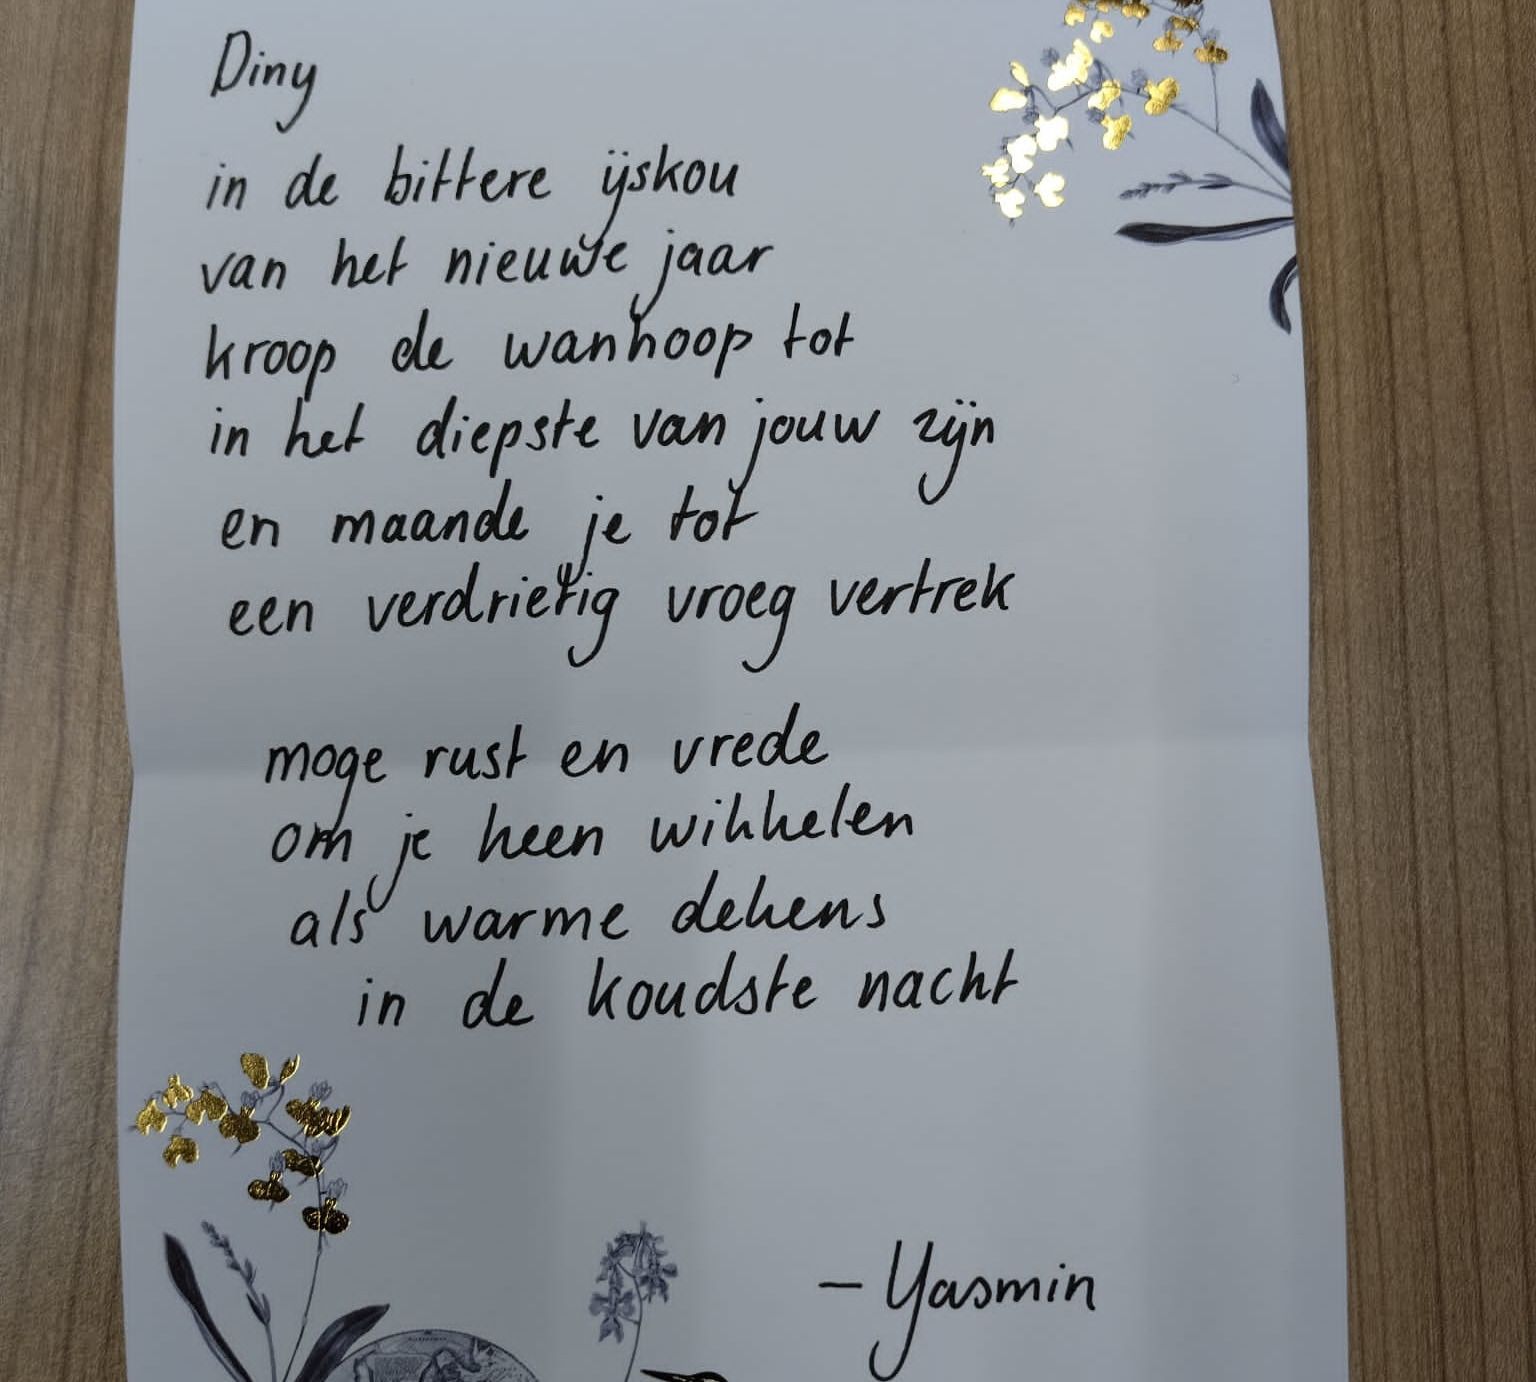 Diny
in de bittere ijskou
van het nieuwe jaar
kroop de wanhoop tot
in het diepste van jouw zijn
en maande je tot
een verdrietig vroeg vertrek
moge rust en vrede
om je heen wikkelen
als warme dekens
in de koudste nacht
– Yasmin